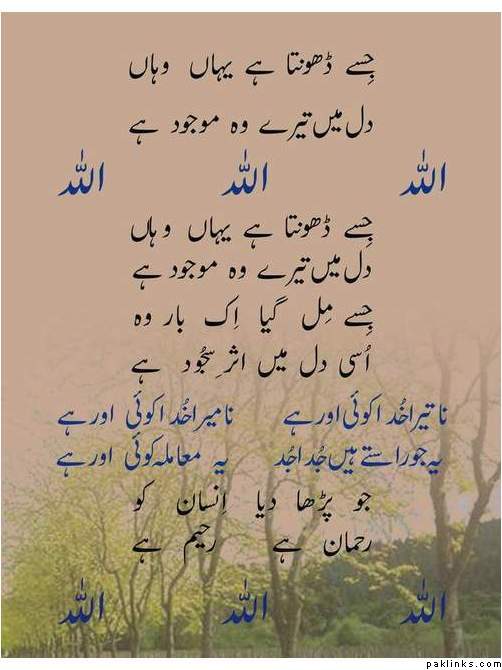 جِسے ڈھونتا ہے یہاں وہاں
دل میں تیرے وہ موجود ہے
اللہ اللہ اللہ
جِسے ڈھونتا ہے یہاں وہاں
دل میں تیرے وہ موجود ہے
جِسے مِل گیا اِک بار وہ
اُسی دل میں اثرِ سجُود ہے
نا تیرا خُدا کوئی اور ہے نا میرا خُدا کوئی اور ہے
یہ جو راستے ہیں جُدا جُدا یہ معاملہ کوئی اور ہے
جو پڑھا دیا اِنسان کو
رحمان ہے رحیم ہے
اللہ اللہ اللہ
paklinks.com